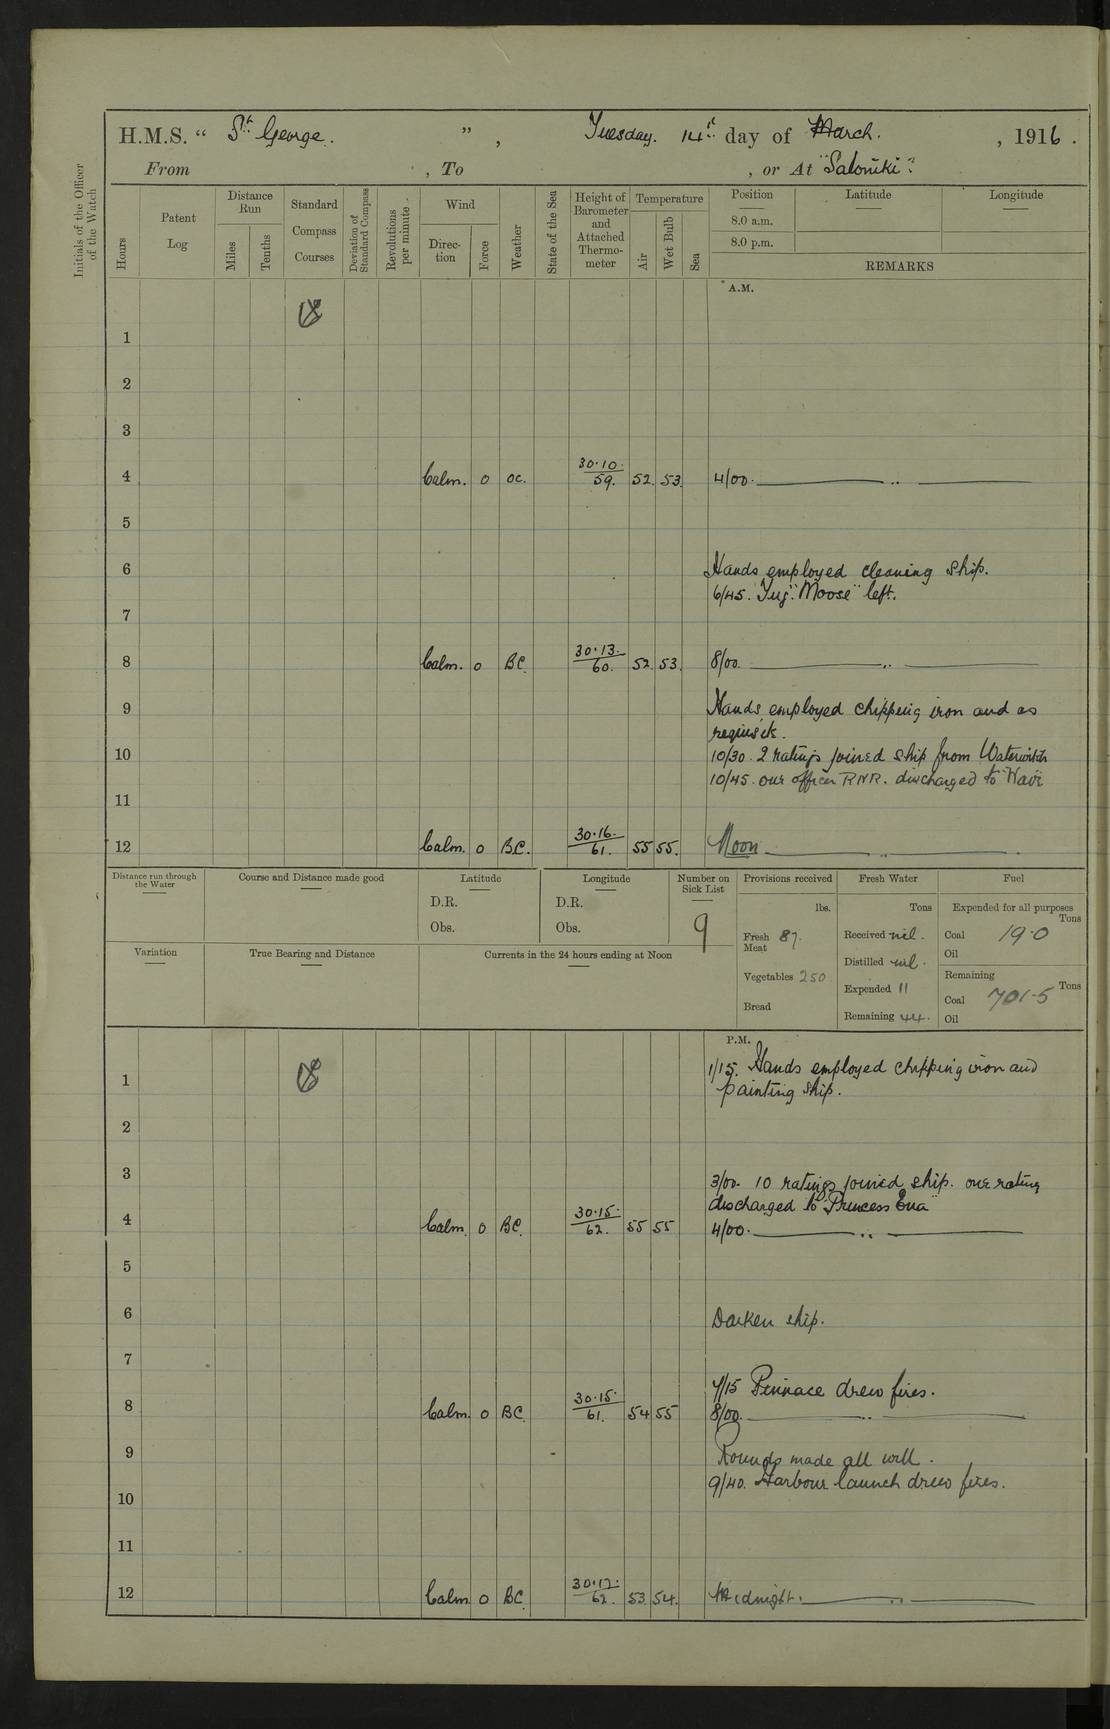 H.M.S. “ St. George. ” , Tuesday. 14th day of March. , 1916.
From , To , or At "Saloniki".
Initials of the Officer of the Watch
Hours
Patent Log
Distance Run
Miles
Tenths
Standard Compass Courses
Deviation of Standard Compass
Revolutions per minute
Wind
Direction
Force
Weather
State of the Sea
Height of Barometer and Attached Thermometer
Temperature
Air
Wet Bulb
Sea
Position Latitude Longitude
8.0 a.m.
8.0 p.m.
REMARKS
A.M.
1
2
3
4 Calm. 0 oc. 30.10. 59. 52. 53. 4/00.
5
6 Hands employed cleaning ship.
6/45. Tug "Moose" left.
7
8 Calm. 0 BC. 30.13. 60. 52. 53. 8/00.
9 Hands employed chipping iron and as
requisite.
10 10/30. 2 ratings joined ship from Waterwitch
10/45. one officer RNR. discharged to
11
12 Calm. 0 B.C. 30.16. 61. 55 55. Noon
Distance run through the Water
Course and Distance made good
Latitude
D.R.
Obs.
Longitude
D.R.
Obs.
Number on Sick List
9
Provisions received
lbs.
Fresh Meat 87.
Vegetables 250
Bread
Fresh Water
Tons
Received nil.
Distilled nil.
Expended 11
Remaining 44.
Fuel
Expended for all purposes
Tons
Coal 19.0
Oil
Remaining
Tons
Coal 701.5
Oil
Variation
True Bearing and Distance
Currents in the 24 hours ending at Noon
P.M.
1 1/15. Hands employed chipping iron and
painting ship.
2
3 3/00. 10 ratings joined ship. one rating
discharged to "Princess Ena"
4 Calm. 0 BC. 30.15. 62. 55 55 4/00.
5
6 Darken ship.
7
7/15 Pinnace drew fires.
8 Calm. 0 BC. 30.15. 61. 54 55 8/00.
9 Rounds made all well.
9/40. Harbour launch drew fires.
10
11
12 Calm 0 BC. 30.17. 62. 53. 54. Midnight.